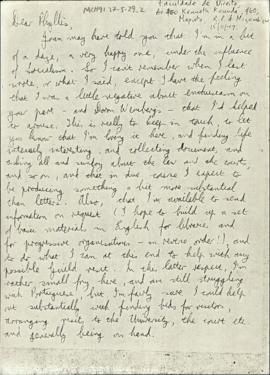 MCH91-17-5-29.2
Faculdade de Direito
Av Dr Kenneth Kaunda, 960,
Maputo,
Dear Phyllis,
Joan may have told you that I'm in a bit
of a daze, a very happy one, under the influence
of Socialism. So I can't remember when I last
wrote, or what I said, except I have the feeling
that I was a little negative about enthusiasm on
your part - and Dorm - that I'd helped
to arouse. This is really to keep in touch, to let
you know that I'm loving it here, and finding life
intensely interesting, and collecting document, and
asking all and sundry about the law and the courts,
and so on, and that in due course I expect to
be producing something a bit more substantial
than letters. Also, that I'm available to send
information on request (I hope to build up a set
of basic material in English for libraries, and
for progressive organisations - in reverse order!), and
to do what I can at this end to help with any
possible visit. In the latter respect, I'm
rather small fry here, and am still struggling
with Portuguese, but I'm fairly sure I could help
out substantially with finding beds for visitors,
arranging visits to the University, the courts etc.
and generally being on hand.